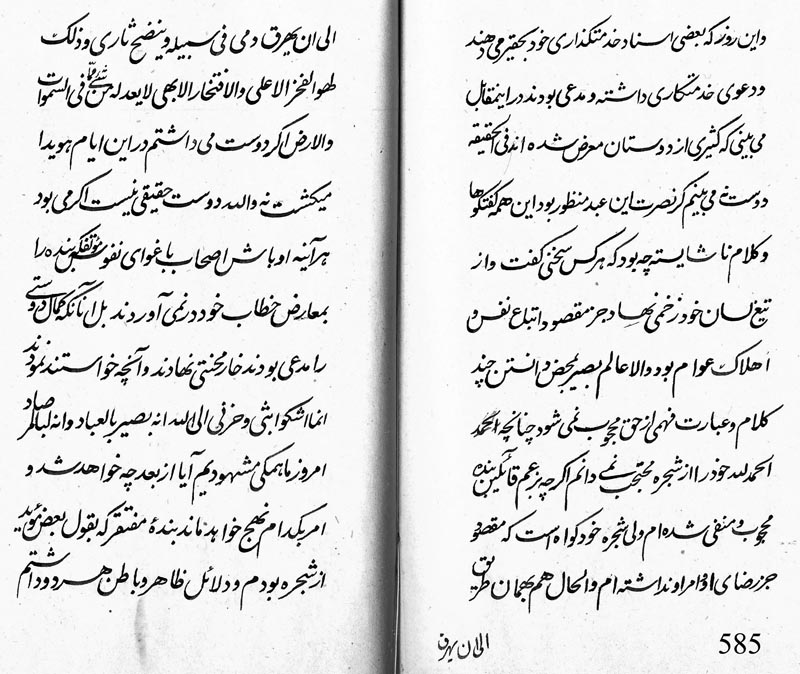 واین روزها که بعضی اسناد خدمتگذاری خود بحقیر می دهند
و دعوی خدمتکاری داشته و مدعی بودند در این مقابل
می بینی که کثیری از دوستان معرض شده اند فی الحقیقه
دوست نمی بینم کر نصرت این عبد منظور بود این همه کفتکوها
و کلام ناشایسته چه بود که هر کس سخنی کفت و از
تیغ لسان خود زخمی نهاد جز مقصود اتباع نفس و
اهلاک عوام بود و الا عالم بصیر بمحض دانستن چند
کلام و عبارت فهمی از حق محجوب نمی شود چنانچه
الحمد لله خود را از شجره محتجب نمی دانم اکر چه بزعم قائلین بنده
محجوب و منفی شده ام ولی شجره خود کواه است که مقصود
جز رضای او و امر او نداشته ام و الحال هم بهمان طریق
الی ان یهرق
585
الی ان یهرق دمی فی سبیله و ینضح ثاری و ذلک
لهو الفخر الاعلی و الافتخار الابهی لا یعدله من شیئ عما فی السموات
و الارض اکر دوست می داشتم در این ایام هویدا
میکشت نه والله دوست حقیقی نیست اکر می بود
هر آینه اوباش اصحاب باغوای نفوس بنده را
بمعارض خطاب خود در نمی آوردند بل انانکه کمال دوستی
را مدعی بودند خار محنتی نهادند و آنچه خواستند نمودند
انما اشکوا بثی و حزنی الی الله انه بصیر بالعباد و انه لبالمرصاد
امروز ما همکی مشهودیم آیا از بعد چه خواهد شد و
امر بکدام نهج خواهد ماند بندهٔ مفتقر که بقول بعض مؤید
از شجره بودم و دلائل ظاهر و باطن هر دو داشتم